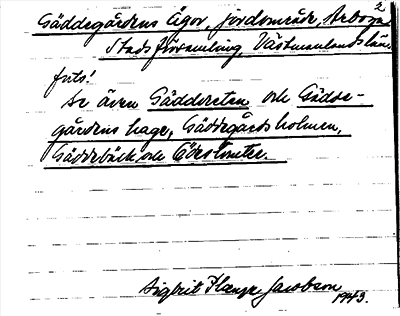 2
Gäddegårdens Ägor, jordområde, Arboga
Stads församling, Västmanlands län.
foto!
Se även Gädde och Gädde-
gårdens hage, Gäddegårdsholmen,
Gäddebäck och
Sigbrit Plænge Jacobson
1943.